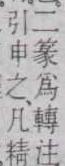 二篆爲轉注
引申之、凡精